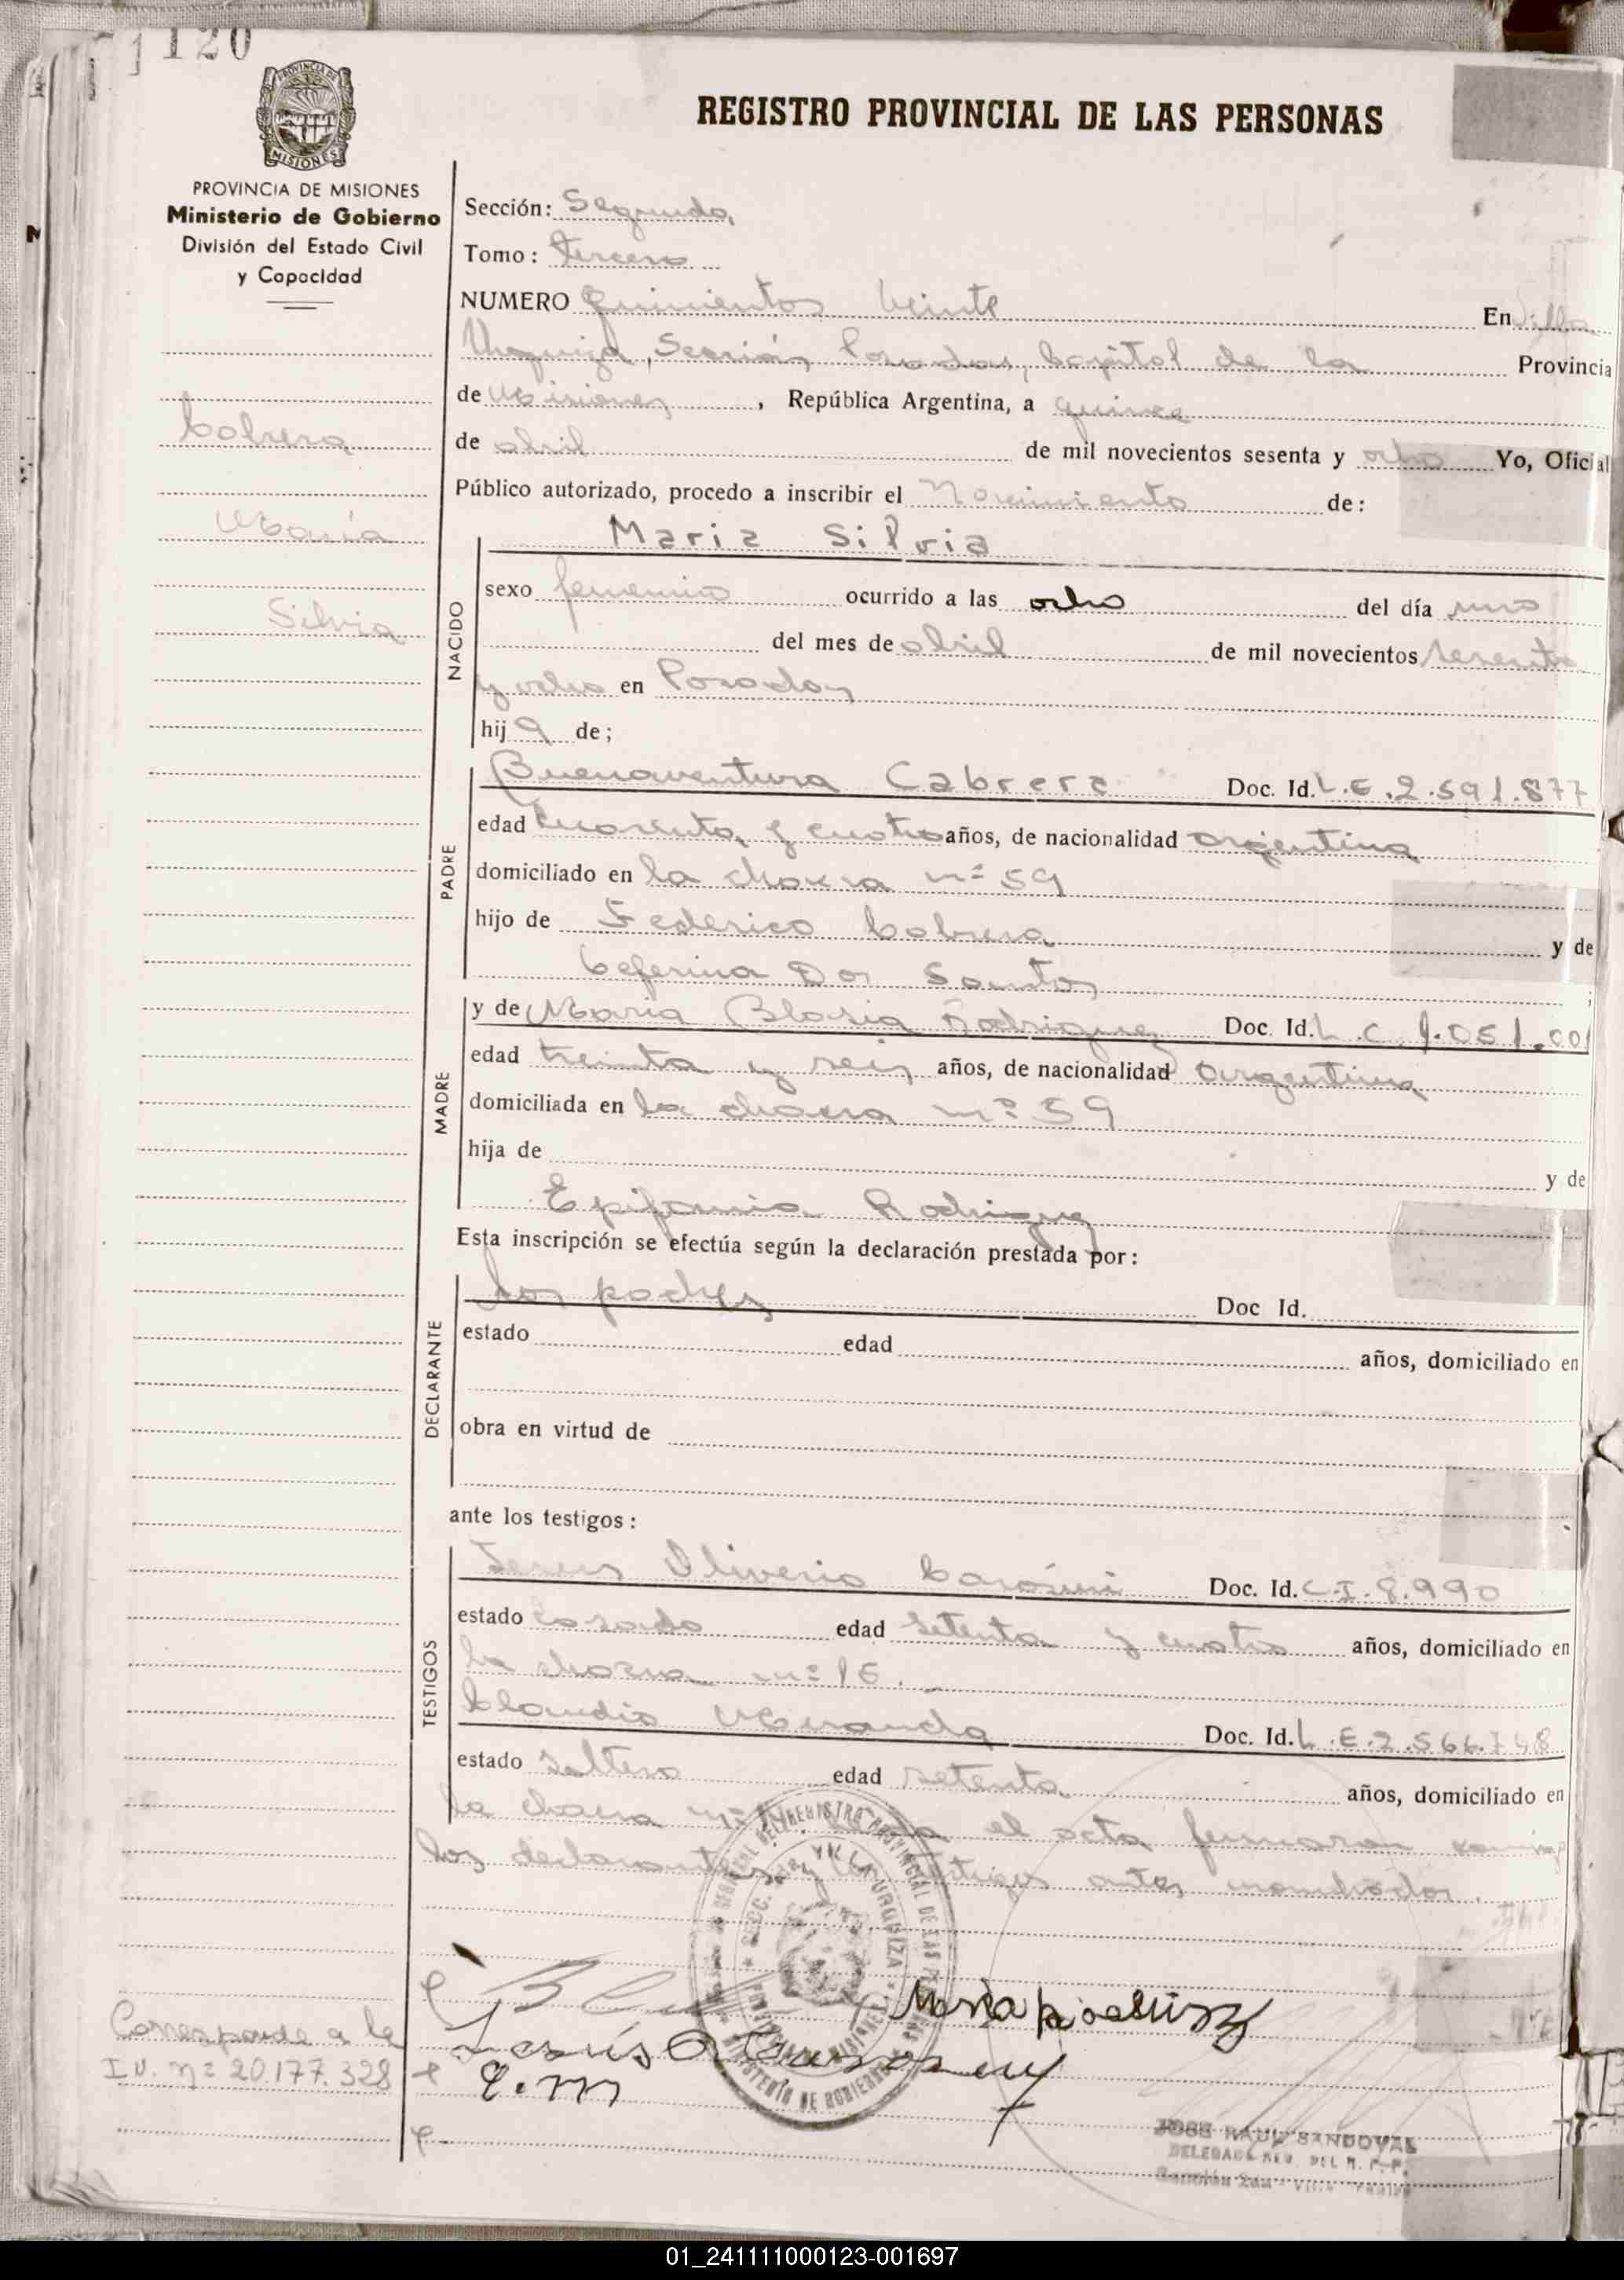 120
PROVINCIA DE MISIONES
Ministerio de Gobierno
División del Estado Civil
y Capacidad
REGISTRO PROVINCIAL DE LAS PERSONAS
Sección: Segunda
Tomo: tercero
NUMERO Quinientos Veinte En Villa
Urquiza, Sección Posadas, Capital de la Provincia
de Misiones, República Argentina, a quince
de abril de mil novecientos sesenta y ocho Yo, Oficial
Público autorizado, procedo a inscribir el Nacimiento de:
Cabrera
María
Silvia
NACIDO
Maria Silvia
sexo femenino ocurrido a las ocho del día uno
del mes de abril de mil novecientos sesenta
y ocho en Posadas
hija de;
PADRE
Buenaventura Cabrera Doc. Id. L.E. 2.591.877
edad cuarenta y cuatro años, de nacionalidad argentina
domiciliado en la chacra nº 59
hijo de Federico Cabrera y de
Ceferina Dos Santos
MADRE
y de María Blasia Rodriguez Doc. Id. L.C. 9.051.00
edad treinta y seis años, de nacionalidad argentina
domiciliada en la chacra nº 59
hija de y de
Epifania Rodriguez
Esta inscripción se efectúa según la declaración prestada por:
DECLARANTE
los padres Doc Id.
estado edad años, domiciliado en
obra en virtud de
ante los testigos:
TESTIGOS
Jesus Oliverio Doc. Id. C.I. 8.990
estado casado edad setenta y cuatro años, domiciliado en
la chacra nº 16.
Claudio Miranda Doc. Id. L.E. 2.566.748
estado soltero edad setenta años, domiciliado en
la chacra nº el acta firmaron
los declarantes y testigos antes nombrados.
MINISTERIO DE GOBIERNO
SECC. 2da. VILLA URQUIZA
PROVINCIA DE MISIONES
Maria Rodriguez
Jesús O
C.M
Corresponde a la
I.D. nº 20.177.328
JOSE RAUL SANDOVAL
DELEGADO REG. DEL R. P. P.
Sección 2da - Villa Urquiza
01_241111000123-001697